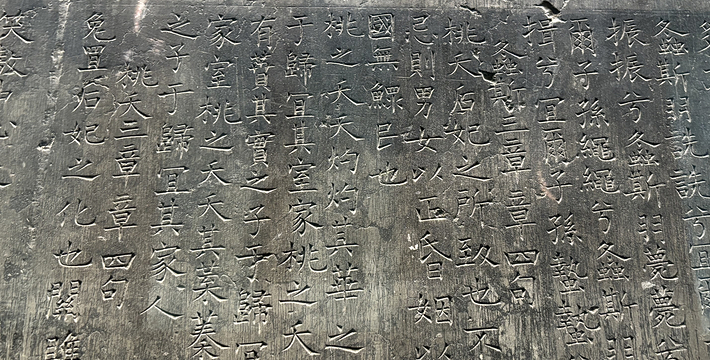 螽斯羽詵詵兮宜
振振兮螽斯羽薨薨
爾子孫繩繩兮螽斯羽
揖兮宜爾子孫蟄蟄
螽斯三章章四句
桃夭后妃之所致也不
忌則男女以正昏姻以
國無鰥民也
桃之夭夭灼灼其華之
于歸宜其室家桃之夭
有蕡其實之子于歸宜
家室桃之夭夭其葉蓁
之子于歸宜其家人
桃夭三章章四句
兔罝后妃之化也關雎